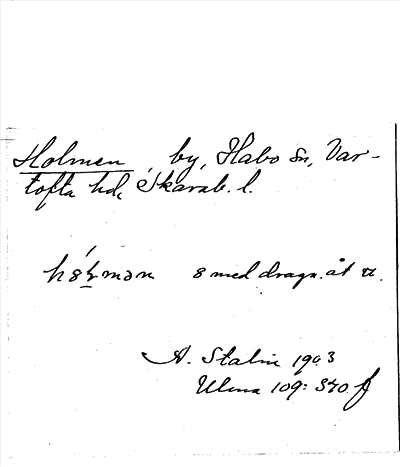 Holmen, by, Habo sn, Var-
tofta hd, Skarab. l.
med dragn. åt
A. Stalin 1903
Ulma 109: 340. f